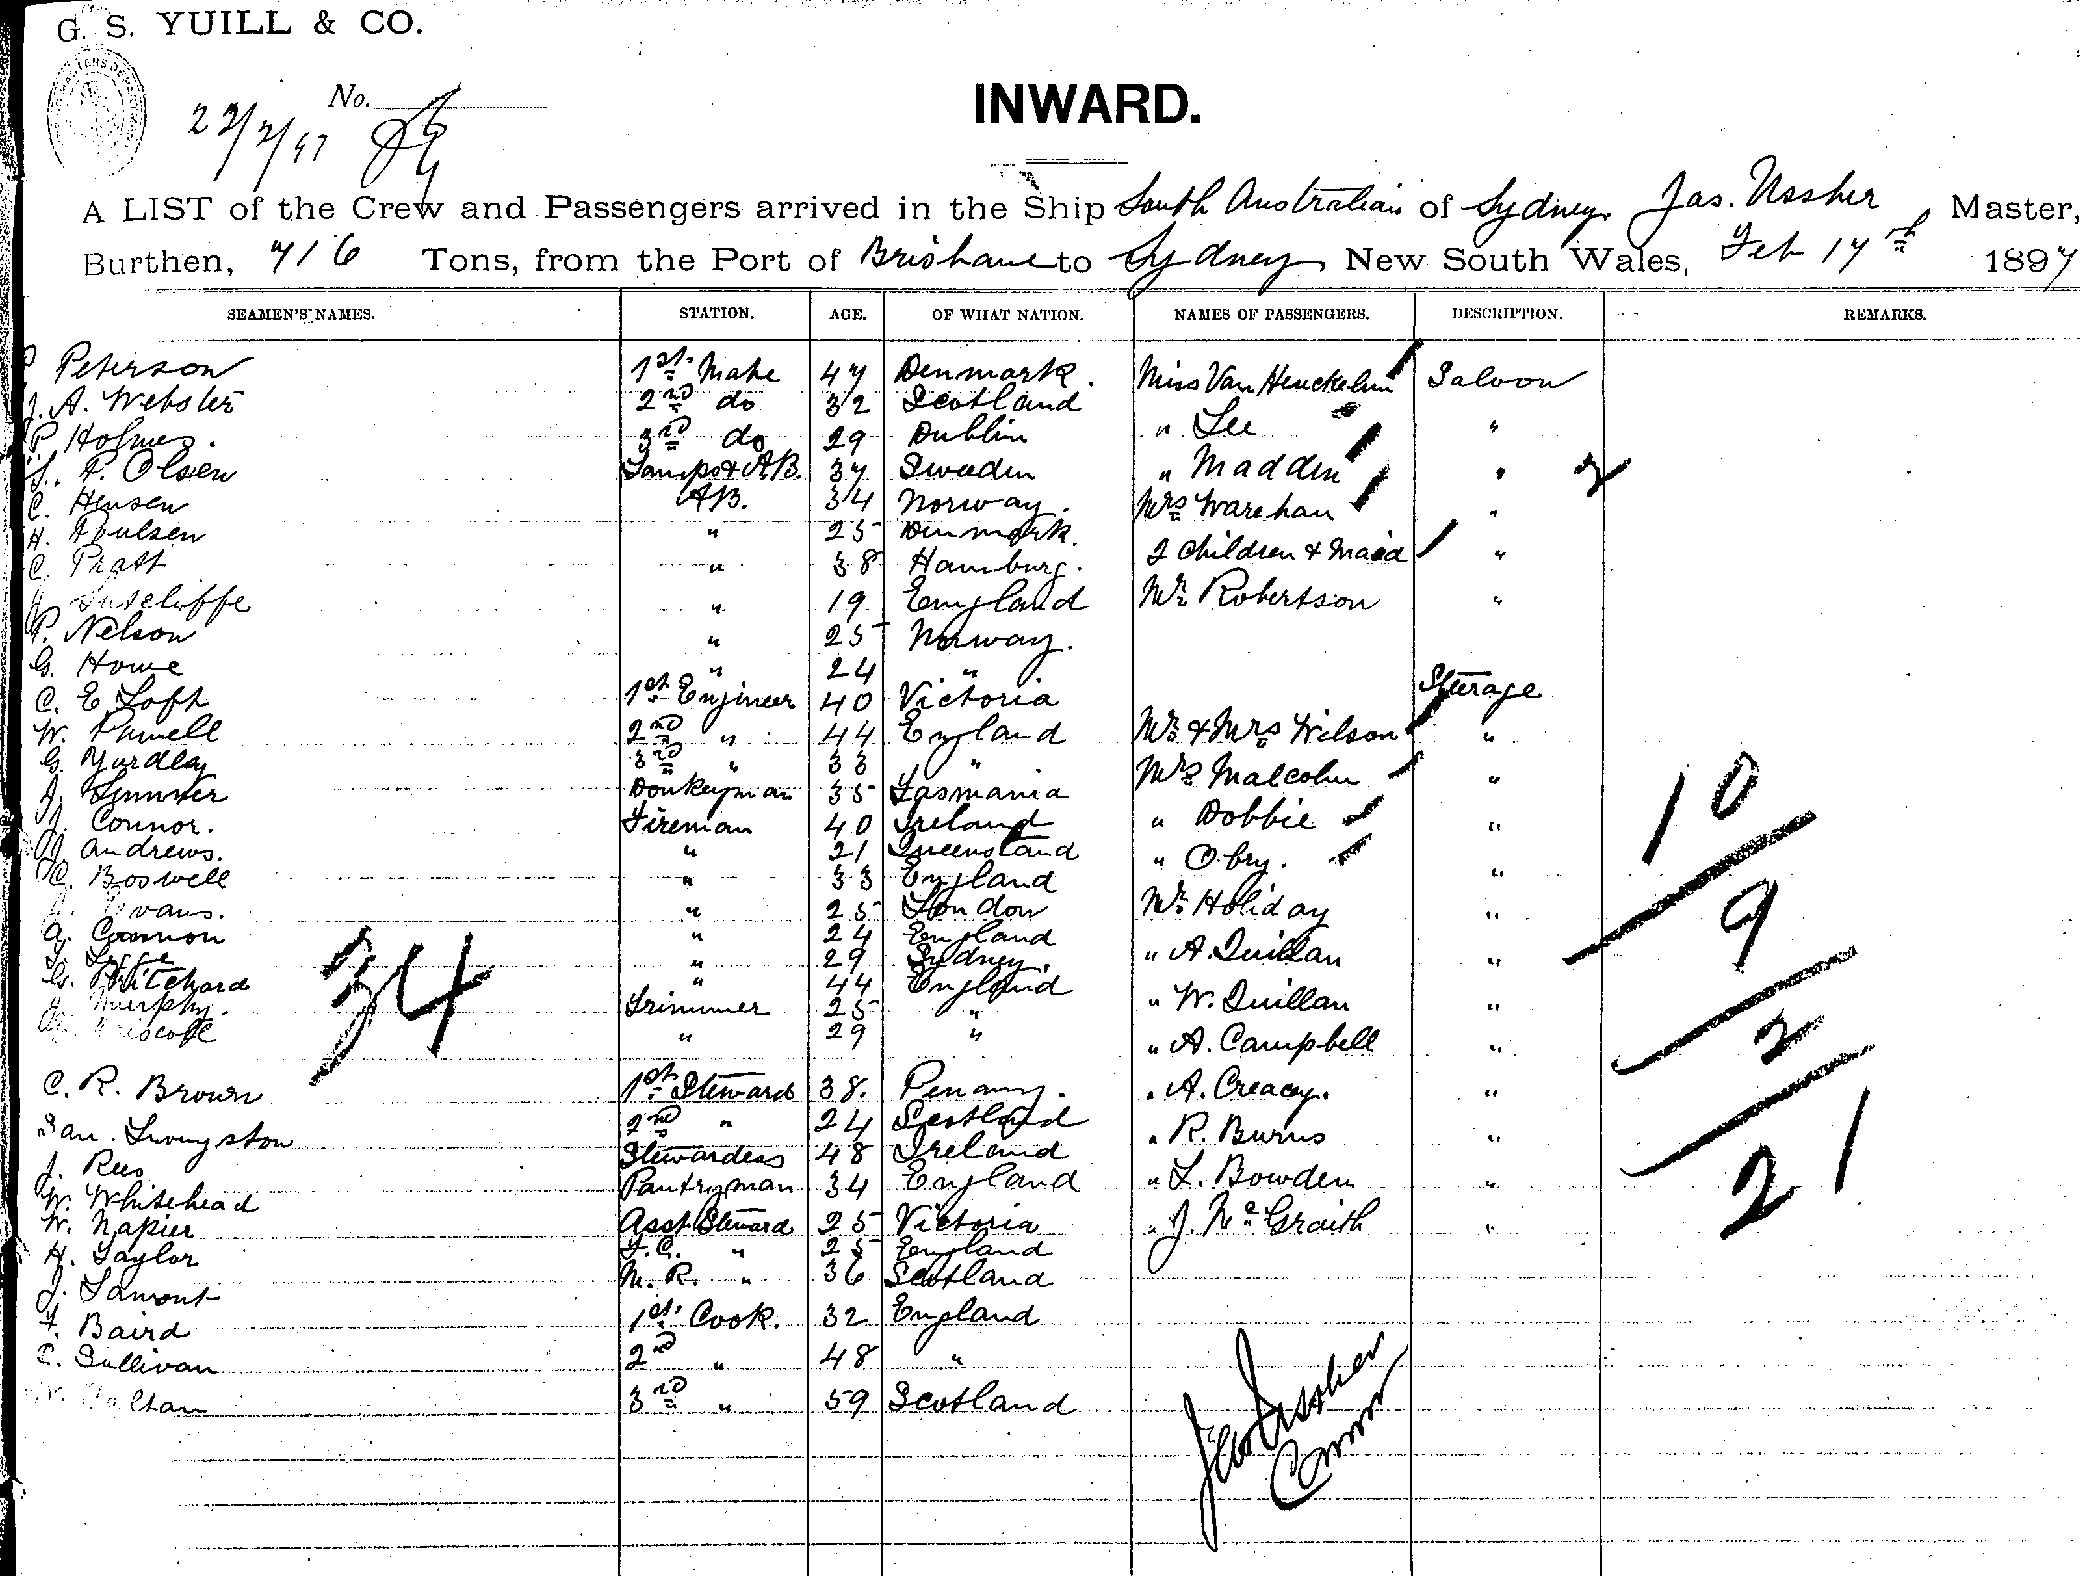 G. S. YUILL & CO.
No.
INWARD.
A LIST of the Crew and Passengers arrived in the Ship South Australian of Sydney, Jas. Ussher Master,
Burthen, 716 Tons, from the Port of Brisbane to Sydney, New South Wales, Feb 17th 1897
SEAMEN'S NAMES. STATION. AGE. OF WHAT NATION. NAMES OF PASSENGERS. DESCRIPTION. REMARKS.
Peterson 1st Mate 47 Denmark. Miss Van Heuckelum Saloon
J. A. Webster 2nd do 32 Scotland " Lee "
P. Holmes. 3rd do 29 Dublin " Madden "
P. Olsen Lamps & A.B. 37 Sweden Mrs Warehan " 2
C. Hensen A.B. 34 Norway. 2 Children & Maid "
H. Poulsen " 25 Denmark. Mr Robertson "
C. Pratt " 38 Hamburg.
Sutcliffe " 19 England
P. Nelson " 25 Norway.
G. Howe " 24 "
C. E. Loft 1st Engineer 40 Victoria Steerage
W. Powell 2nd " 44 England Mr & Mrs Wilson "
G. Yardley 3rd " 33 " Mrs Malcolm "
Donkeyman 35 Tasmania " Dobbie "
Connor. Fireman 40 Ireland " Obry. "
Andrews. " 21 Queensland Mr Holiday "
Boswell " 33 England " A. Quillan "
Evans. " 25 London " W. Quillan "
A. Cannon " 24 England " A. Campbell "
" 29 Sydney.
G. Pritchard " 44 England
Murphy. Trimmer 25 "
Driscoll " 29 "
34
10
9
2
21
C. R. Brown 1st Steward 38. Penang. " A. Creacy. "
Livingston 2nd " 24 Scotland " R. Burns "
J. Rees Stewardess 48 Ireland " L. Bowden "
W. Whitehead Pantryman 34 England " J. McGraith "
W. Napier Asst Steward 25 Victoria
H. Taylor F.C. " 25 England
J. Lamont M. R. " 36 Scotland
F. Baird 1st Cook. 32 England
C. Sullivan 2nd " 48 "
3rd " 59 Scotland
Jas Ussher